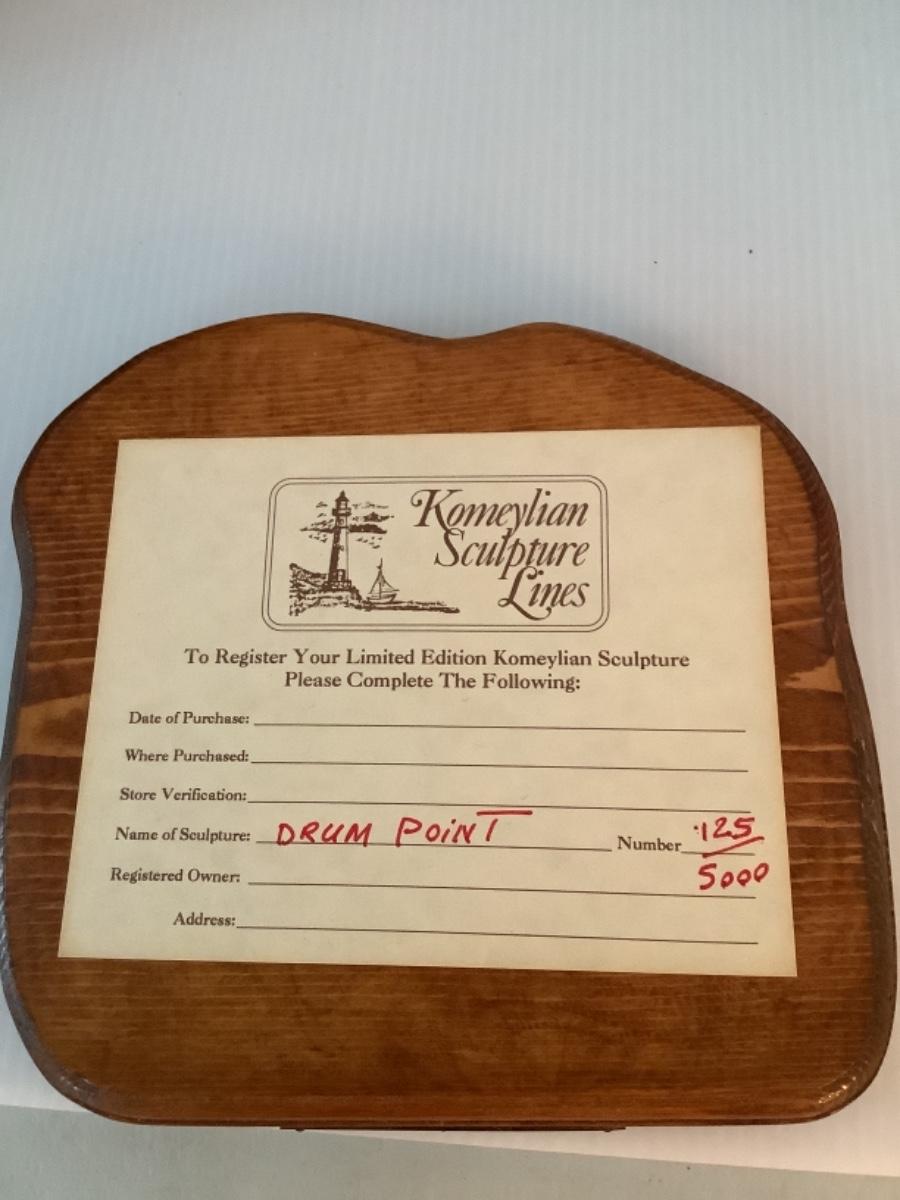 Komeylian
Sculpture
Lines
To Register Your Limited Edition Komeylian Sculpture
Please Complete The Following:
Date of Purchase:
Where Purchased:
Store Verification:
Name of Sculpture: DRUM POINT Number 125
5000
Registered Owner:
Address: